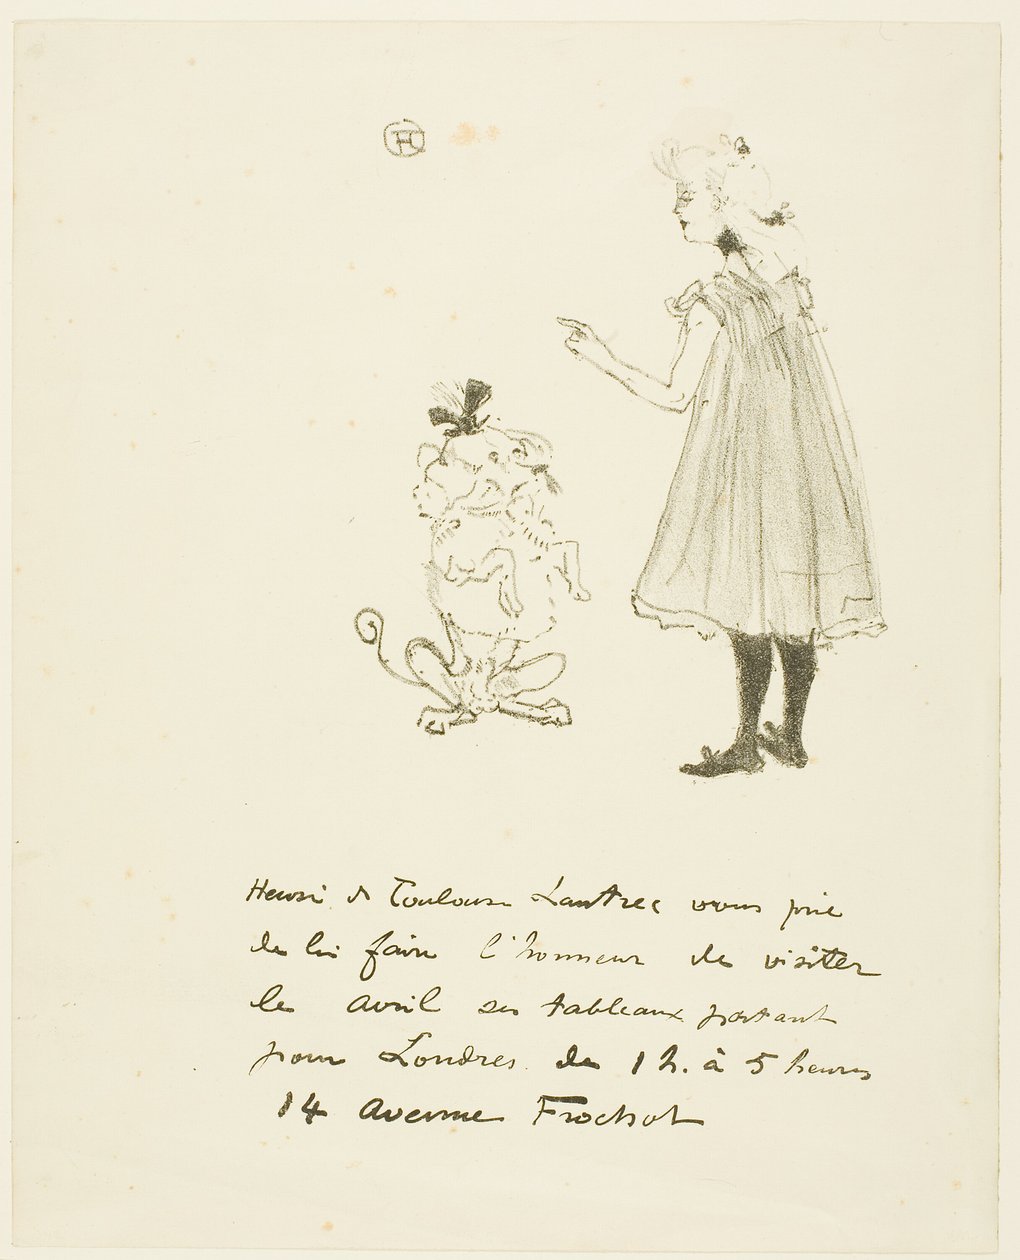 Henri de Toulouse Lautrec vous prie
de lui faire l'honneur de visiter
le avril ses tableaux partant
pour Londres. de 1 h. à 5 heures
14 avenue Frochot